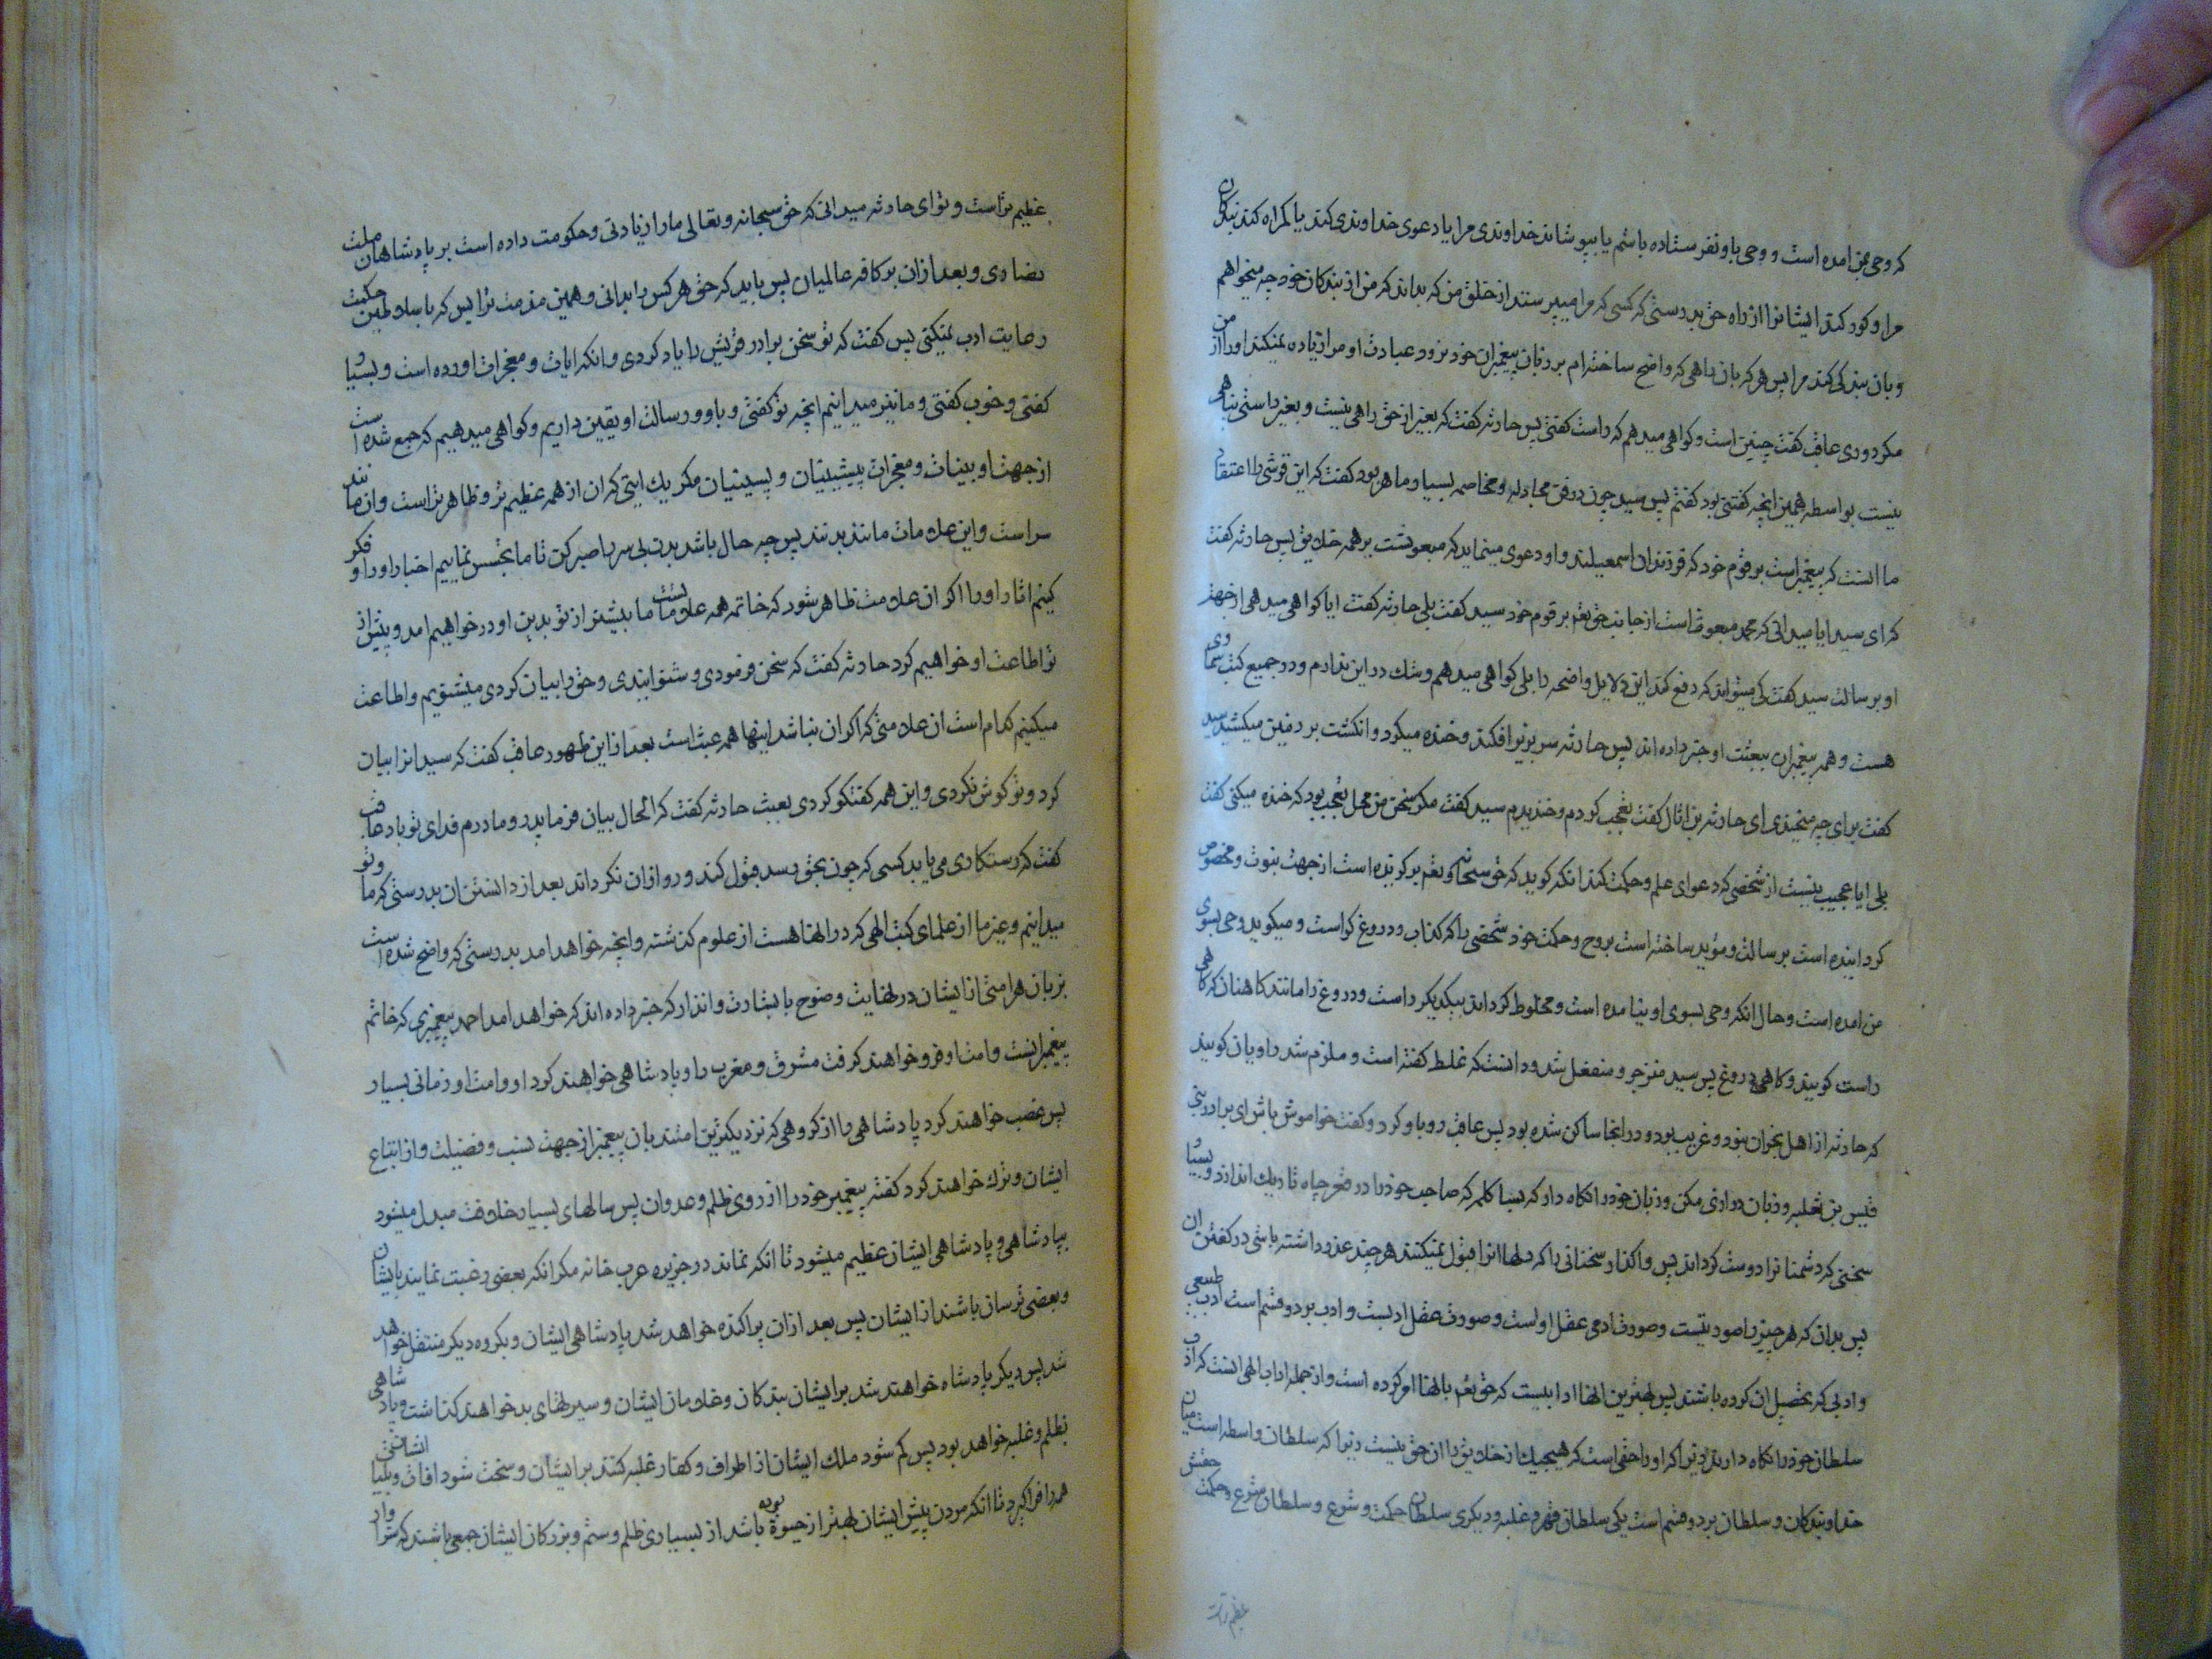 که وحی بمن امده است و وحی باو نفرستاده باشم یا بپوشاند خداوندی مرا یا دعوی خداوندی کند یا گمراه کند بندکان
مرا و کور کند ایشانرا از راه حق بدرستی که کسی که مرا میپرستد از خلق من که بداند که من از بندکان خود چه میخواهم
و بان بندکی کند مرا پس هر که بان راهی که واضح ساخته ام بر زبان پیغمبران خود نرود عبادت او مرا زیاده نمیکند او را از من
مکر دوری عاقب کفت چنین است و کواهی میدهم که راست کفتی پس حارثه کفت که بغیر از حق راهی نیست و بغیر راستی پناهی
نیست بواسطه همین انچه کفتنی بود کفتم پس سید چون در فن مجادله و مخاصمه بسیار ماهر بود کفت که این قرشی را اعتقاد
ما انست که پیغمبر است بر قوم خود که فرزندان اسمعیلند و او دعوی مینماید که مبعوثست بر همه خلایق پس حارثه کفت
که ای سید ایا میدانی که محمد مبعوث است از جانب حق تعم بر قوم خود سید کفت بلی حارثه کفت ایا کواهی میدهی از جهة
او برسالت سید کفت کی میتواند که دفع کند این دلایل واضحه را بلی کواهی میدهم و شک در این ندارم و در جمیع کتب سماوی
هست و همه پیغمبران ببعثت او خبر داده اند پس حارثه سر بزیر افکند و خنده میکرد و انکشت بر زمین میکشید سید
کفت برای چه میخندی ای حارثه بن اثال کفت تعجب کردم و خندیدم سید کفت مکر سخن من محل تعجب بود که خنده میکنی کفت
بلی ایا عجیب نیست از شخصی که دعوای علم و حکمت کند انکه کوید که حق سبحانه و تعم برکزیده است از جهت نبوت و مخصوص
کردانیده است برسالت و مؤید ساخته است بروح و حکمت خود شخصی را که کذاب و دروغ کو است و میکوید وحی بسوی
من امده است و حال انکه وحی بسوی او نیامده است و مخلوط کرداند بیکدیکر راست و دروغ را مانند کاهنان که کاهی
راست کویند و کاهی دروغ پس سید منزجر و منفعل شد و دانست که غلط کفته است و ملزم شد راویان کویند
که حارثه از اهل نجران نبود و غریب بود و در انجا ساکن شده بود پس عاقب رو باو کرد و کفت خواموش باش ای برادر بنی
قیس بن ثعلبه و زبان درازی مکن و زبان خود را نکاه دار که بسا کلمه که صاحب خود را در قعر چاه تاریک اندازد و بسیار
سخنی که دشمنا ترا دوست کرداند پس واکذار سخنانی را که دلها انرا قبول نمیکنند هر چند عذر داشته باشی در کفتن ان
پس بدان که هر چیز را صورتیست و صورت ادمی عقل اوست و صورت عقل ادبست و ادب بر دو قسم است ادب طبیعی
و ادبی که تحصیل ان کرده باشند پس بهترین انها ادابیست که حق تعم بانها امر کرده است و از جمله اداب الهی انست که ادب
سلطان خود را نکاه دارند زیرا که او را حقی است که هیچیک از خلایق را ان حق نیست زیرا که سلطان واسطه است میان
خدا و بندکان و سلطان بر دو قسم است یکی سلطان قهر و غلبه و دیکری سلطان حکمت و شرع و سلطان شرع و حکمت حقش
عظیم تراست
عظیم تراست و تو ای حارثه میدانی که حق سبحانه و تعالی ما را زیادتی و حکومت داده است بر پادشاهان ملت
نضاری و بعد از ان بر کافه عالمیان پس باید که حق هر کس را بدانی و همین مذمت ترا بس که با سلاطین حکمت
رعایت ادب نمیکنی پس کفت که تو سخن برادر قریش را یاد کردی و انکه ایات و معجزات اورده است و بسیار
کفتی و خوب کفتی و ما نیز میدانیم انچه تو کفتی و باو و رسالت او یقین داریم و کواهی میدهیم که جمع شده است
از جهت او بینات و معجزات پیشینیان و پسینیان مکر یک ایتی که ان از همه عظیم تر و ظاهر تر است و ان مانند
سر است و این علامات مانند بدنند پس چه حال باشد بدن بی سر را صبر کن تا ما تجسس نماییم اخبار او را و فکر
کنیم اثار او را اکر ان علامت ظاهر شود که خاتمه همه علامات است ما بیشتر از تو بدین او در خواهیم امد و پیش از
تو اطاعت او خواهیم کرد حارثه کفت که سخن فرمودی و شنوانیدی و حق را بیان کردی میشنویم و اطاعت
میکنیم کدام است ان علامتی که اکر ان نباشد اینها همه عبث است بعد از این ظهور عاقب کفت که سید انرا بیان
کرد و تو کوش نکردی و این همه کفتکو کردی بعبث حارثه کفت که الحال بیان فرما پدر و مادرم فدای تو باد عاقب
کفت که رستکاری می یابد کسی که چون بحق رسد قبول کند و رو از ان نکرداند بعد از دانستن ان بدرستی که ما و تو
میدانیم و غیر ما از علمای کتب الهی که در انها هست از علوم کذشته و انچه خواهد امد بدرستی که واضح شده است
بزبان هر امتی از ایشان در نهایت وضوح با بشارت و انذار که خبر داده اند که خواهد امد احمد پیغمبری که خاتم
پیغمبرانست و امت او فرو خواهند کرفت مشرق و مغرب را و پادشاهی خواهند کرد او و امت او زمانی بسیار
پس غصب خواهند کرد پادشاهی را از کروهی که نزدیکترین امتند بان پیغمبر از جهت نسب و فضیلت و از اتباع
ایشان و ترک خواهند کرد کفته پیغمبر خود را از روی ظلم و عدوان پس سالهای بسیار خلافت مبدل میشود
بپادشاهی و پادشاهی ایشان عظیم میشود تا انکه نماند در جزیره عرب خانه مکر انکه بعضی رغبت نمایند بایشان
و بعضی ترسان باشند از ایشان پس بعد از ان پراکنده خواهد شد پادشاهی ایشان و بکروه دیکر منتقل خواهد
شد پس دیکر پادشاه خواهند شد بر ایشان بندکان و خادمان ایشان و سیرتهای بد خواهند کذاشت و پادشاهی
بظلم و غلبه خواهد بود پس کم شود ملک ایشان از اطراف و کفار غلبه کنند بر ایشان و سخت شود افات و بلیات ایشان
همه را فرا کیرد تا انکه مردن پیش ایشان بهتر از حیوة بوده باشد از بسیاری ظلم و ستم و بزرکان ایشان جمعی باشند که سزاوار